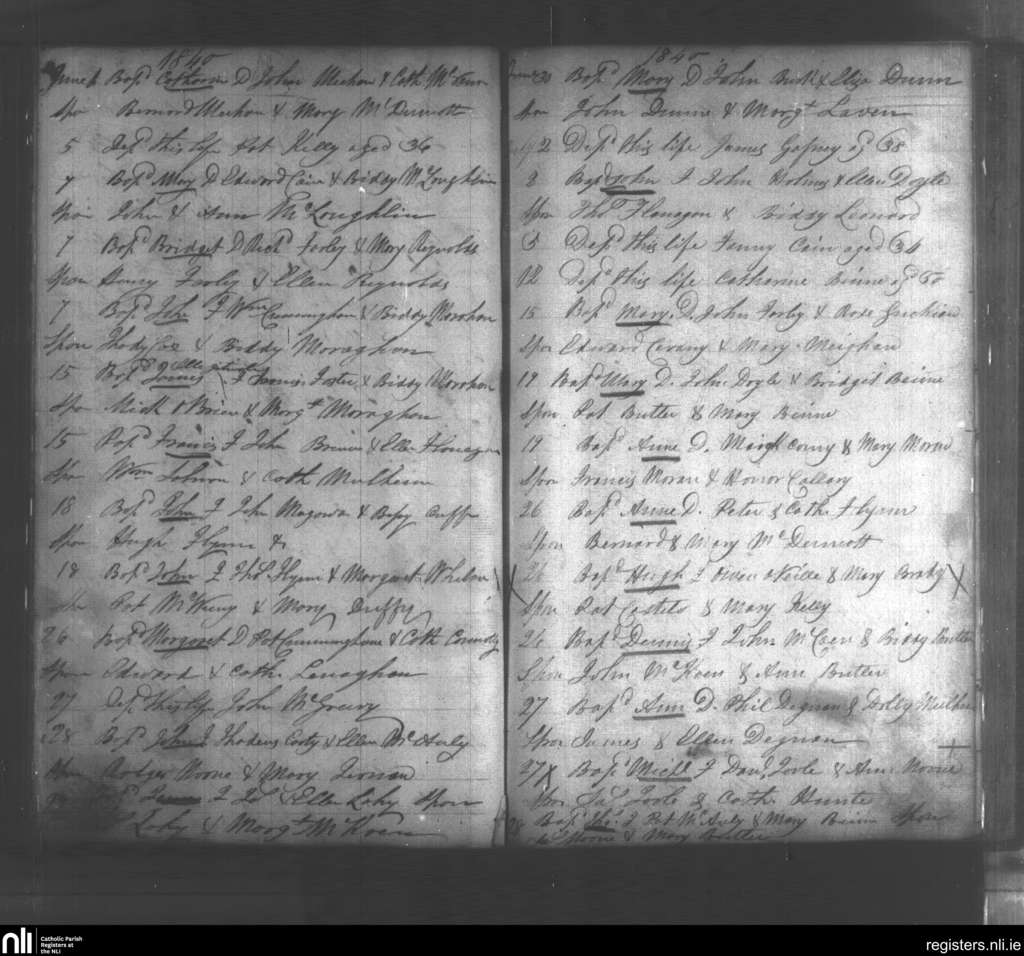 1840
June 1 Bapd Catherine D John Meehan & Cath Mc
Spo Bernard Meehan & Mary McDermott
5 Depd this life Pat Kelly aged 36
7 Bapd Mary D Edward Cain & Biddy McLoughlin
Spon John & Ann McLoughlin
7 Bapd Bridget D Richd Farley & Mary Reynolds
Spon Henry Farley & Ellen Reynolds
7 Bapd John F Wm Cunningham & Biddy Morahan
Spon Thady & Biddy Moraghan
15 Bapd Francis F Francis Foster & Biddy Morahan
Spo Mick O Brien & Margt Moraghan
15 Bapd Francis F John & Ellen Flanagan
Spo Wm & Cath Mulhern
18 Bapd John F John Magowan & Betsy Cuffe
Spon Hugh Flynn &
18 Bapd John F Thos Flynn & Margaret Whelan
Pat & Mary Duffy
26 Bapd Margaret D Pat Cunninghame & Cath Connolly
Spon Edward & Cath. Lenaghan
27 Depd this life John McGreevy
28 Bapd John F Thadeus & Ellen McAnly
Spon Rodger Noone & Mary Tiernan
F & Ellen Spon
& Margt McKoen
1840
June 30 Bapd Mary D John & Eliza Dunn
Spon John Dunne & Margt Laven
2 Depd this life James Gafney ag 38
3 Bapd John F John & Ellen Doyle
Spon Thos Flanagan & Biddy Leonard
5 Depd this life Fanny Cain aged 34
12 Depd this life Catherine Beirne ag 50
15 Bapd Mary D. John Farley & Rose
Spon Edward & Mary Meighan
19 Bapd Mary D. John Doyle & Bridget Beirne
Spon Pat Butler & Mary Beirne
19 Bapd Anne D. & Mary Moran
Spon Francis Moran & Honor Callary
26 Bapd Anne D. Peter & Cath. Flynn
Spon Bernard & Mary McDermott
26 Bapd Hugh F Owen O Neille & Mary Brady
Spon Pat Costelo & Mary Kelly
26 Bapd Dennis F John McCoen & Biddy Butler
Spon John McKoen & Ann Butler
27 Bapd Ann D. Phil Degnan & Dolly
Spon James & Ellen Degnan
27 Bapd Michl F Danl Toole & Ann Noone
Spon Jas Toole & Cath. Hunte
28 Bapd F Pat McAnly & Mary Beirne Spon
Noone & Mary Butler
nli
Catholic Parish
Registers at
the NLI
registers.nli.ie